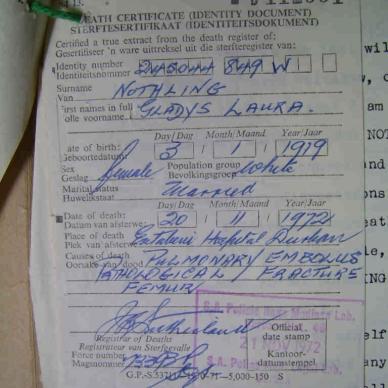 DEATH CERTIFICATE (IDENTITY DOCUMENT)
STERFTESERTIFIKAAT (IDENTITEITSDOKUMENT)
Certified a true extract from the death register of:
Gesertifiseer 'n ware uittreksel uit die sterfteregister van:
Identity number
Identiteitsnommer
W
Surname
Van
NOTHLING
First names in full
Volle voorname
GLADYS LAURA.
Day/Dag Month/Maand Year/Jaar
Date of birth:
Geboortedatum:
3 / 1 / 1919
Sex
Geslag
female
Population group
Bevolkingsgroep
White
Marital status
Huwelikstaat
Married
Day/Dag Month/Maand Year/Jaar
Date of death:
Datum van afsterwe:
20 / 11 / 1972
Place of death
Plek van afsterwe
Entabeni Hospital Durban
Causes of death
Oorsake van dood
PULMONARY EMBOLUS
PATHOLOGICAL FRACTURE
FEMUR
Registrar of Deaths
Registrateur van Sterfgevalle
Force number
Magsnommer
Official
date stamp
Kantoor-
datumstempel
21 NOV 1972
S.A. Police
G.P.-S.
5,000-150 S